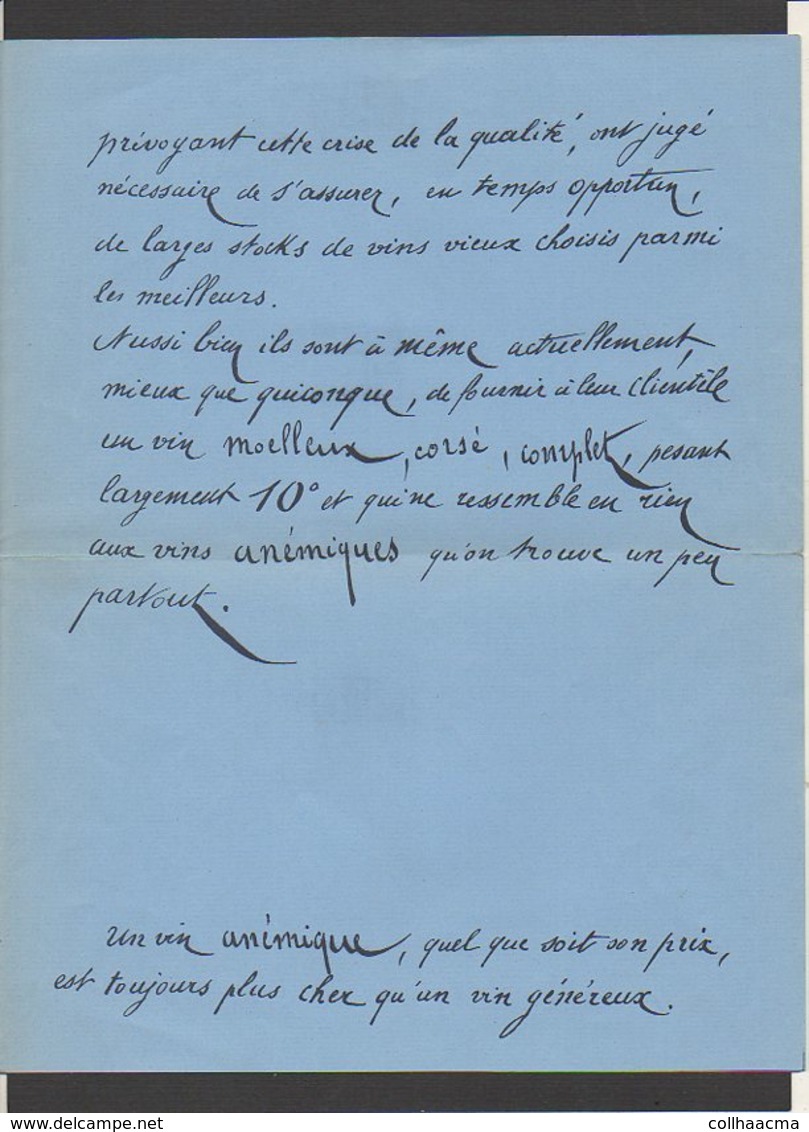 prévoyant cette crise de la qualité, ont jugé
nécessaire de s'assurer, en temps opportun,
de larges stocks de vins vieux choisis parmi
les meilleurs.
Aussi bien ils sont à même actuellement,
mieux que quiconque, de fournir à leur clientèle
un vin moelleux, corsé, complet, pesant
largement 10° et qui ne ressemble en rien
aux vins anémiques qu'on trouve un peu
partout.
Un vin anémique, quel que soit son prix,
est toujours plus cher qu'un vin généreux.
collhaacma